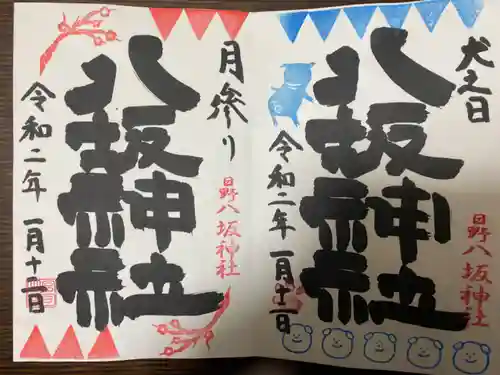 犬之日
日野八坂神社
八坂神社
令和二年 一月十二日
月参り
日野八坂神社
八坂神社
令和二年 一月十二日